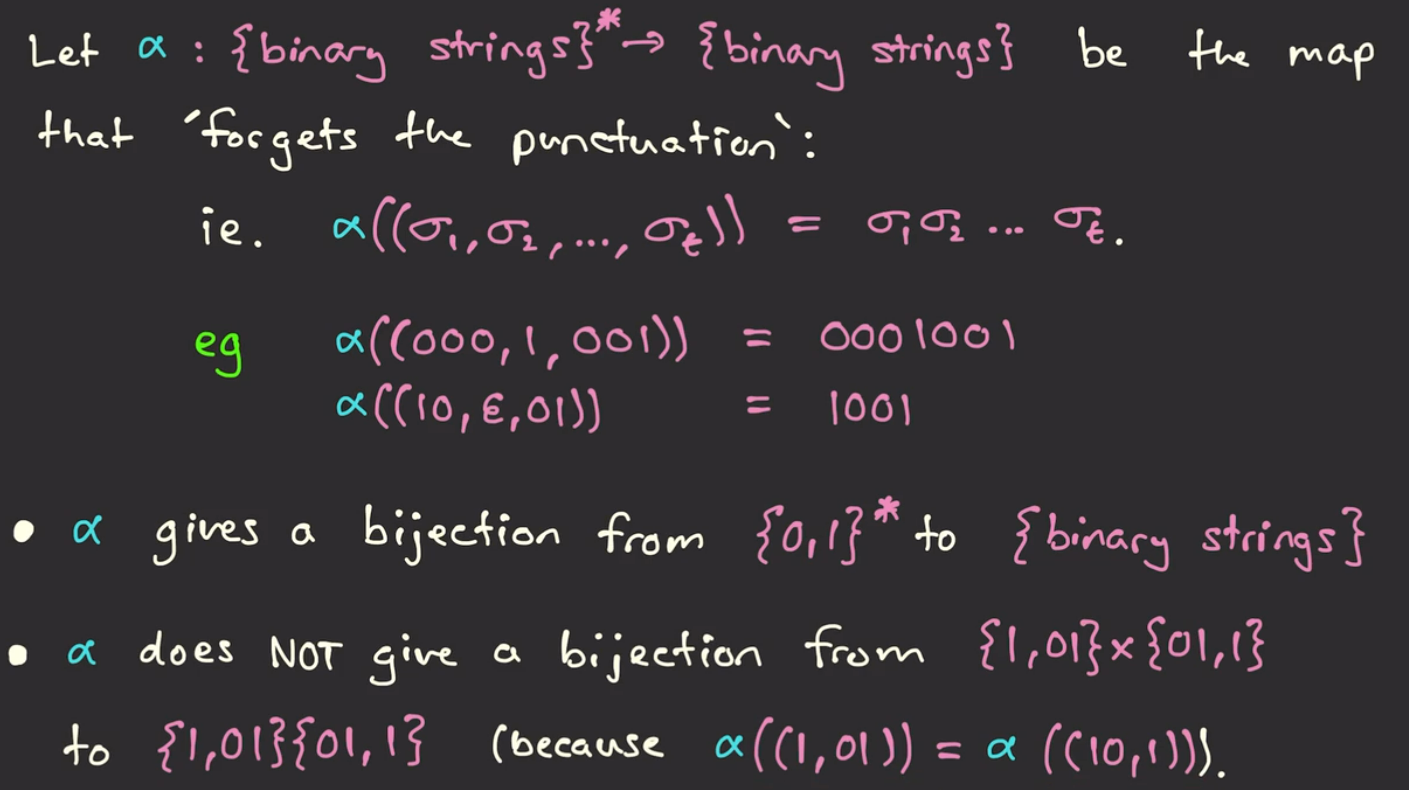 Let α : {binary strings}* → {binary strings} be the map
that 'forgets the punctuation`:
ie. α((σ₁, σ₂, ..., σₜ)) = σ₁σ₂ ... σₜ.
eg α((000, 1, 001)) = 0001001
α((10, ε, 01)) = 1001
• α gives a bijection from {0,1}* to {binary strings}
• α does NOT give a bijection from {1,01}×{01,1}
to {1,01}{01,1} (because α((1,01)) = α((10,1))).